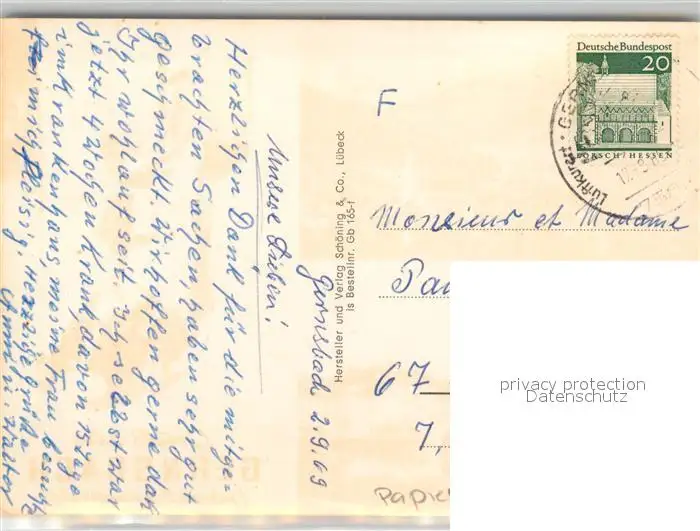 Gernsbad 2.9.69
Unsere Lieben!
Herzlichen Dank für die mitge-
brachten Sachen, haben sehr gut
geschmeckt. Wir hoffen gerne daß
Ihr wohlauf seit. Ich selbst war
jetzt 4 Wochen Krank davon 15 Tage
im Krankenhaus, meine Frau besucht
mich fleissig, Herzliche Grüße
Hersteller und Verlag Schöning & Co., Lübeck
Is Bestellnr. Gb 165-f
F
Deutsche Bundespost
20
LORSCH/HESSEN
Luftkurort
Monsieur et Madame
67
7,
Papier
privacy protection
Datenschutz